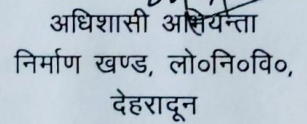 अधिशासी अभियन्ता
निर्माण खण्ड, लो०नि०वि०,
देहरादून